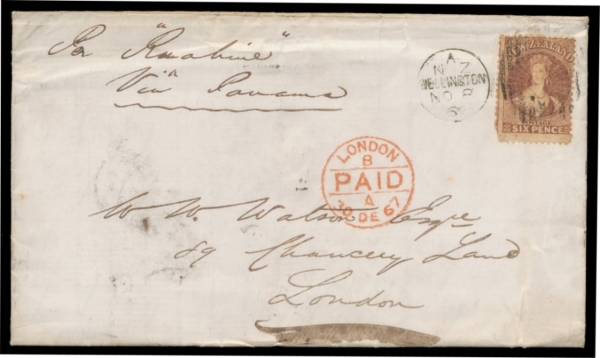 Per "Ruahine"
Via Panama
A
N Z
WELLINGTON
NO 8
6
NEW ZEALAND
SIX PENCE
LONDON
B
PAID
A
30 DE 67
W. W. Watson Esqre
89 Chancery Lane
London